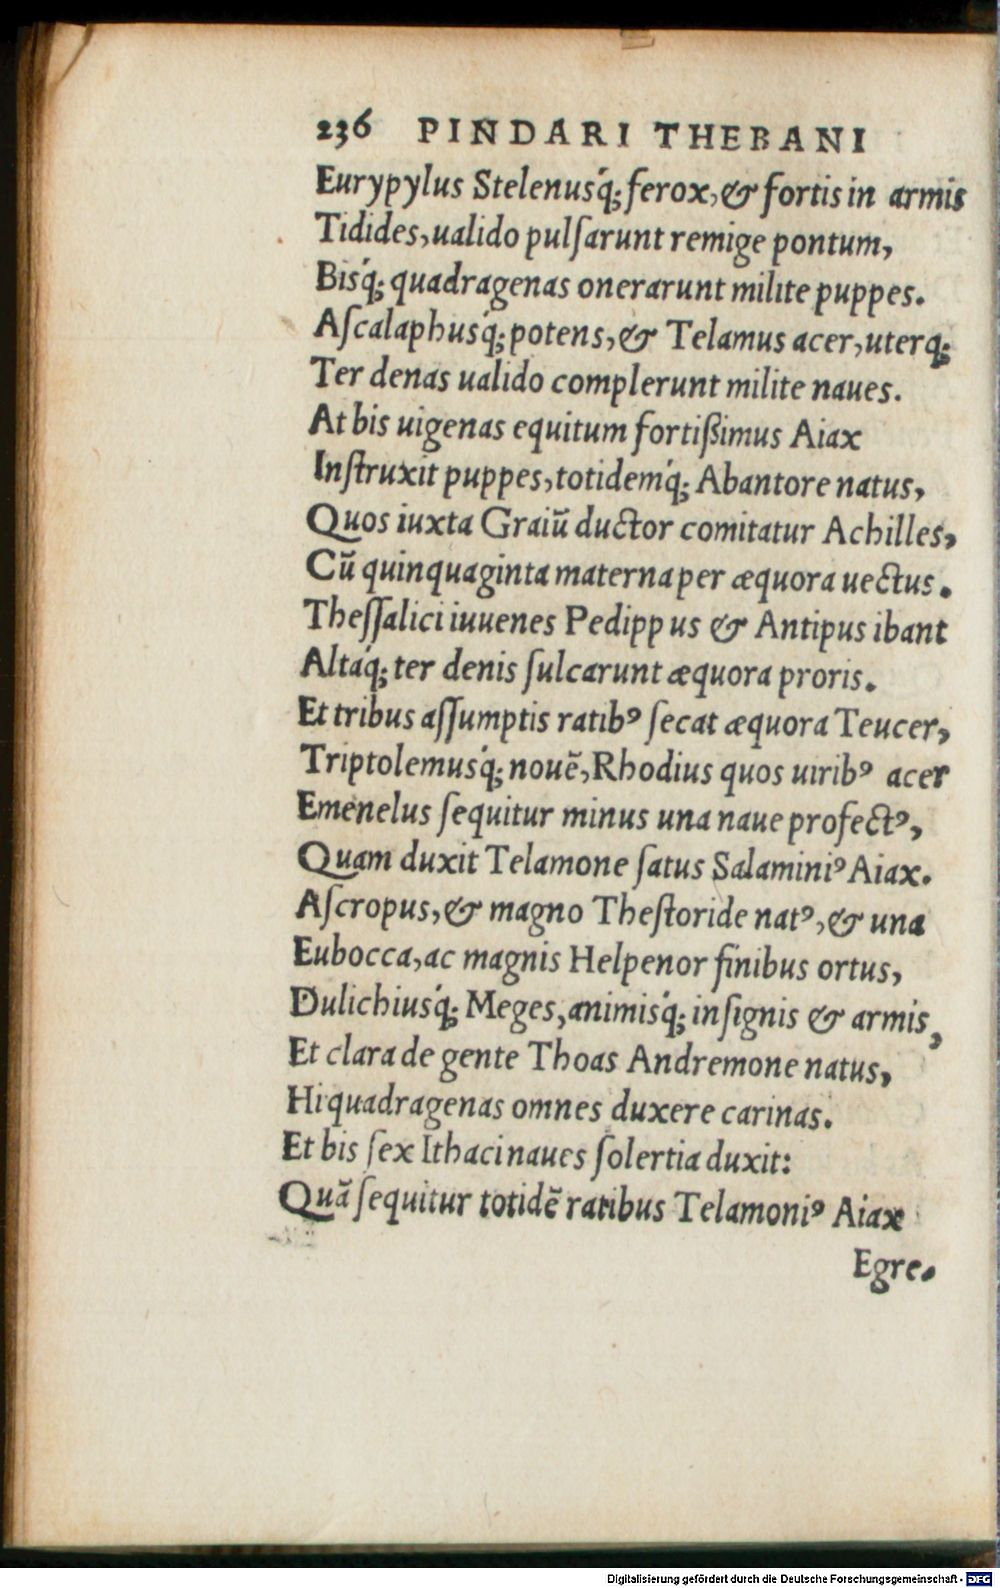 236 PINDARI THEBANI
Eurypylus Stelenusq́; ferox, & fortis in armis
Tidides, ualido pulſarunt remige pontum,
Bisq́; quadragenas onerarunt milite puppes.
Aſcalaphusq́; potens, & Telamus acer, uterq;
Ter denas ualido complerunt milite naues.
At bis uigenas equitum fortißimus Aiax
Inſtruxit puppes, totidemq́; Abantore natus,
Quos iuxta Graiū ductor comitatur Achilles,
Cū quinquaginta materna per æquora uectus.
Theſſalici iuuenes Pedippus & Antipus ibant
Altaq́; ter denis ſulcarunt æquora proris.
Et tribus aſſumptis ratibꝰ ſecat æquora Teucer,
Triptolemusq́; nouē, Rhodius quos uiribꝰ acer
Emenelus ſequitur minus una naue profectꝰ,
Quam duxit Telamone ſatus Salaminiꝰ Aiax.
Aſcropus, & magno Theſtoride natꝰ, & una
Eubocca, ac magnis Helpenor finibus ortus,
Dulichiusq́; Meges, animisq́; inſignis & armis,
Et clara de gente Thoas Andremone natus,
Hi quadragenas omnes duxere carinas.
Et bis ſex Ithaci naues ſolertia duxit:
Quā ſequitur totidē ratibus Telamoniꝰ Aiax
Egre.
Digitalisierung gefördert durch die Deutsche Forschungsgemeinschaft - DFG